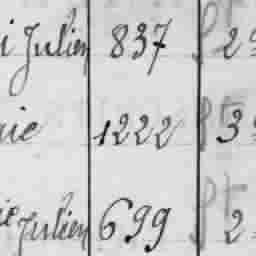 i Julien 837 St 2
rie 1222 St 3
ie Julien 699 St 2